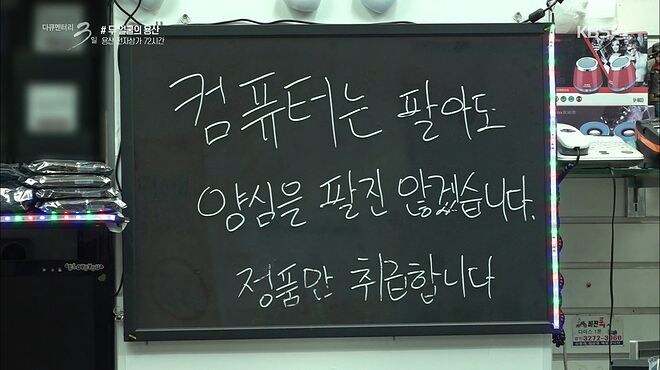 다큐멘터리
3일
# 두 얼굴의 용산
용산 전자상가 72시간
컴퓨터는 팔아도
양심을 팔진 않겠습니다.
정품만 취급합니다
3272-3060